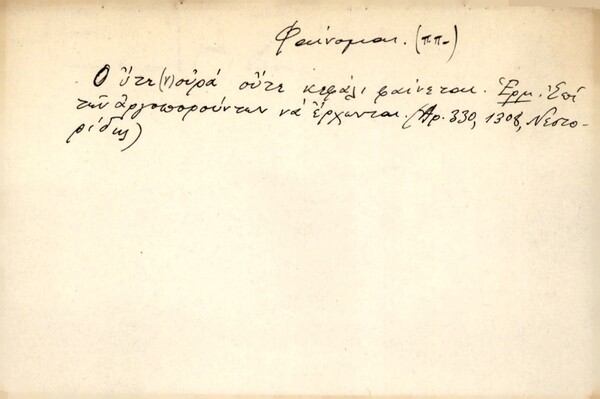 Φαίνομαι. (ππ.)
Ο ὔτε (ν)ουρά οὔτε κεφάλι φαίνεται. Ἑρμ. Ἐπί
τῶν ἀργοπορούντων νά ἔρχωνται. (Ἀρ. 330, 1308, Νεστο-
ρίδης)